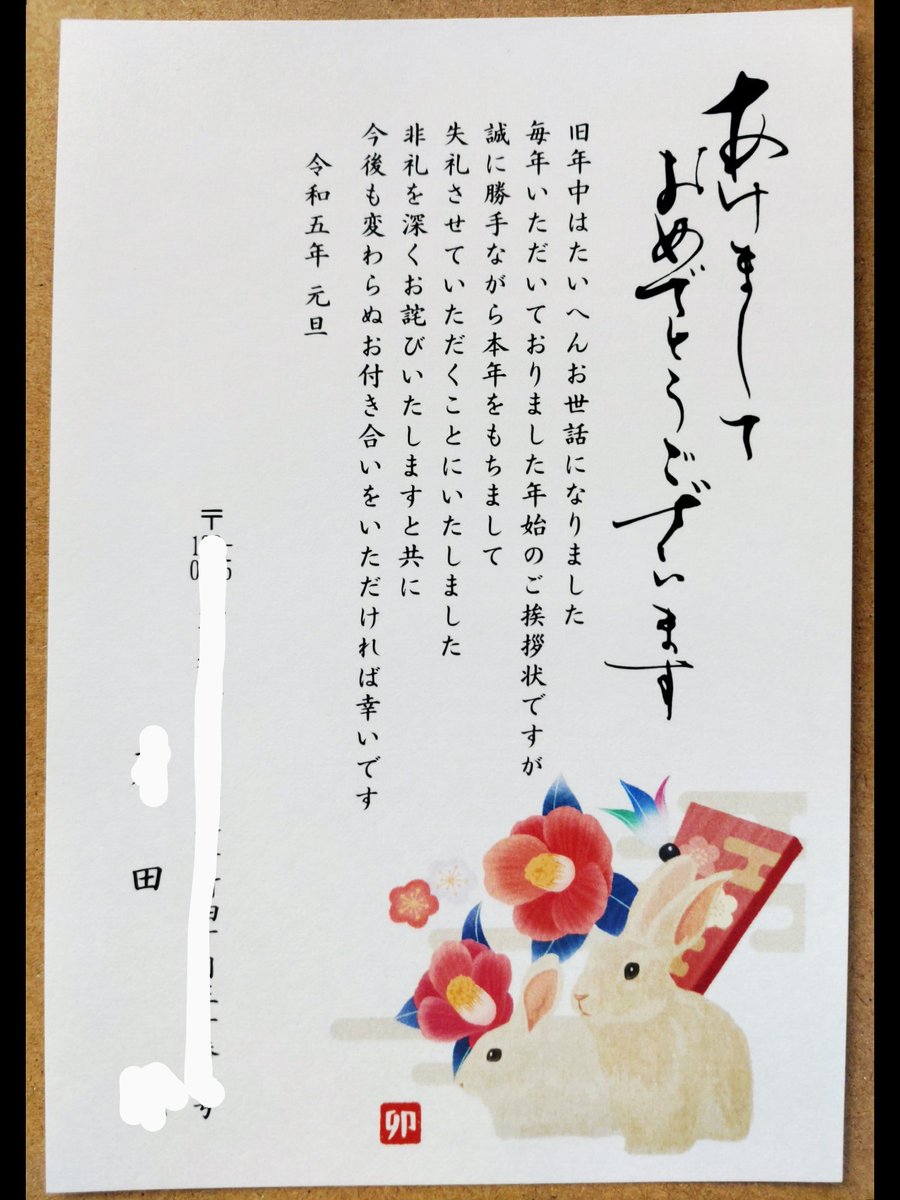 あけまして
おめでとうございます
旧年中はたいへんお世話になりました
毎年いただいておりました年始のご挨拶状ですが
誠に勝手ながら本年をもちまして
失礼させていただくことにいたしました
非礼を深くお詫びいたしますと共に
今後も変わらぬお付き合いをいただければ幸いです
令和五年 元旦
〒
田
卯